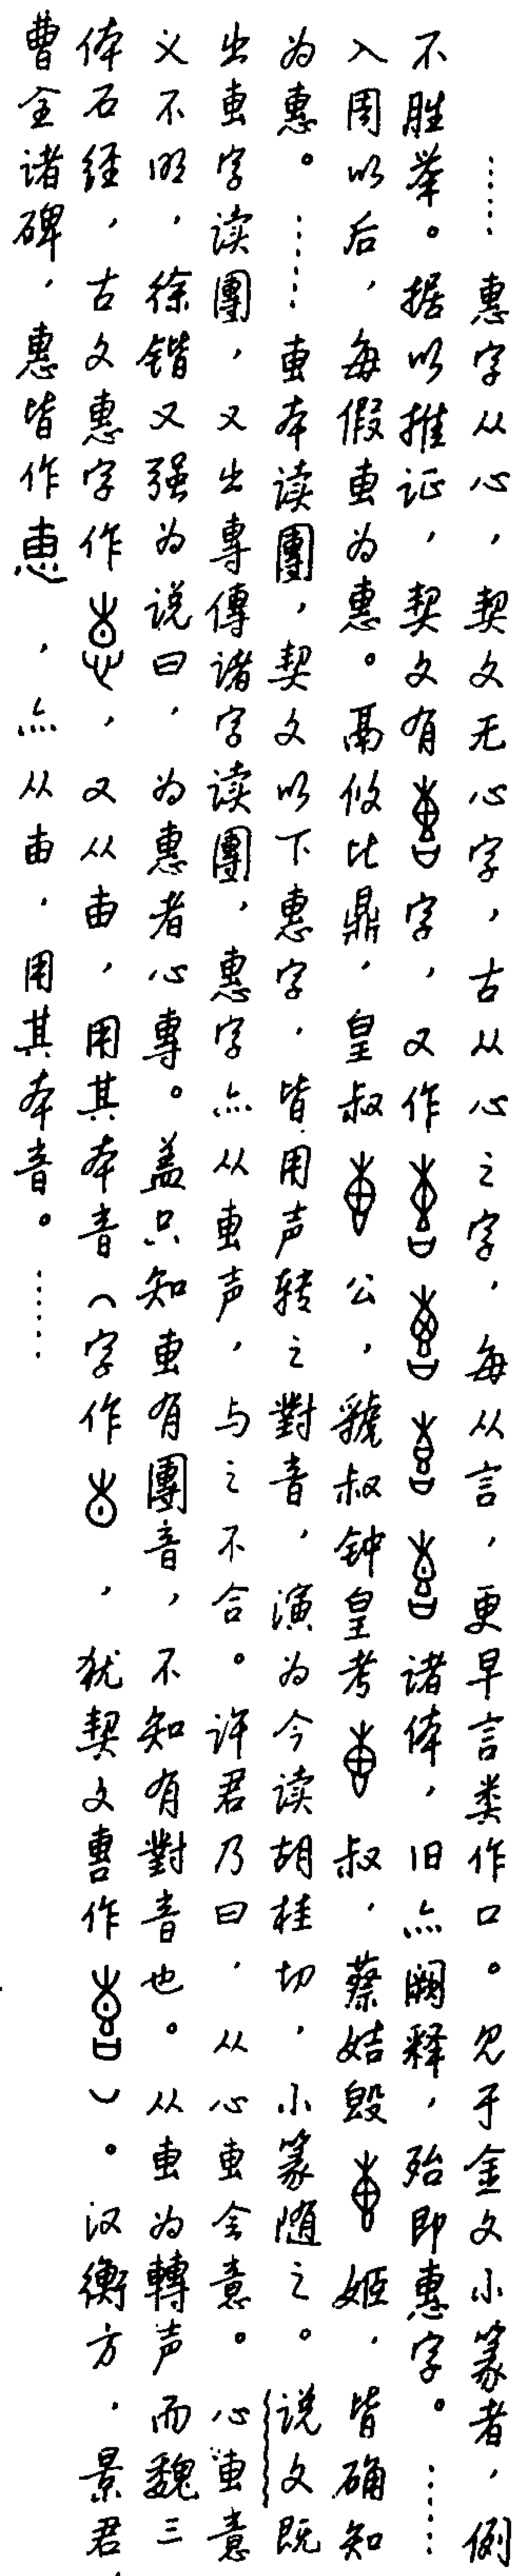 ……惠字从心，契文无心字，古从心之字，每从言，更早言类作口。见于金文小篆者，例
不胜举。据以推证，契文有字，又作诸体，旧亦阙释，殆即惠字。……
入周以后，每假叀为惠。鬲攸比鼎，皇叔公，虢叔钟皇考叔，蔡姞𣪘姬，皆确知
为惠。……叀本读團，契文以下惠字，皆用声转之對音，演为今读胡桂切，小篆随之。说文既
出叀字读團，又出專傳诸字读團，惠字亦从叀声，与之不合。许君乃曰，从心叀会意。心叀意
义不明，徐锴又强为说曰，为惠者心專。盖只知叀有團音，不知有對音也。从叀为轉声而魏三
体石经，古文惠字作，又从甶，用其本音（字作，犹契文作）。汉衡方，景君，
曹全诸碑，惠皆作恵，亦从甶，用其本音。……